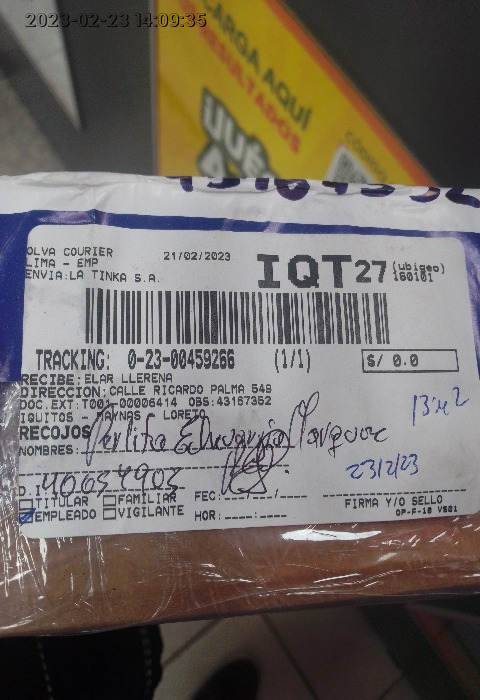 2023-02-23 14:09:35
CARGA AQUÍ
RESULTADOS
OLVA COURIER
21/02/2023
LIMA - EMP
ENVIA:LA TINKA S.A.
IQT27 (ubigeo) 160101
TRACKING: 0-23-00459266 (1/1)
S/ 0.0
RECIBE: ELAR LLERENA
DIRECCION: CALLE RICARDO PALMA 549
DOC.EXT: T001-00006414 OBS:43167352
IQUITOS - MAYNAS - LORETO
RECOJOS
NOMBRES:
23/2/23
D.I
TITULAR FAMILIAR FEC:
EMPLEADO VIGILANTE HOR:
FIRMA Y/O SELLO
OP-F-18 VS01